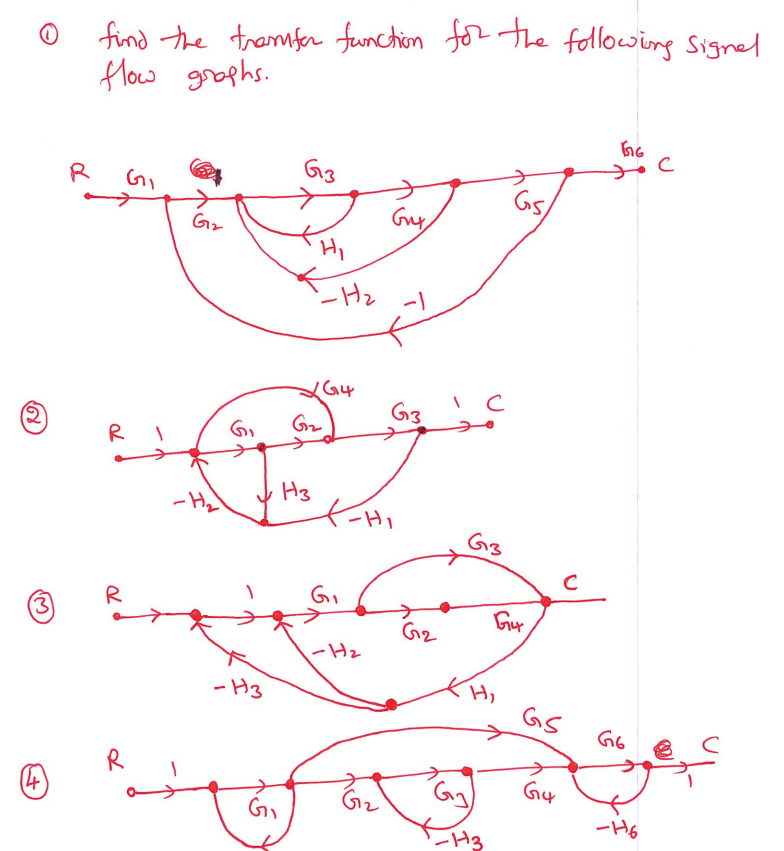 ① find the transfer function for the following signal
flow graphs.
R G1 G3 G6 C
G2 G4 G5
H1
-H2 -1
②
G4
R 1 G1 G2 G3 1 C
-H2 H3 -H1
③
G3
R 1 G1 C
G2 G4
-H2
-H3 H1
④
G5
R 1 G6 C
G1 G2 G3 G4 1
-H3 -H6